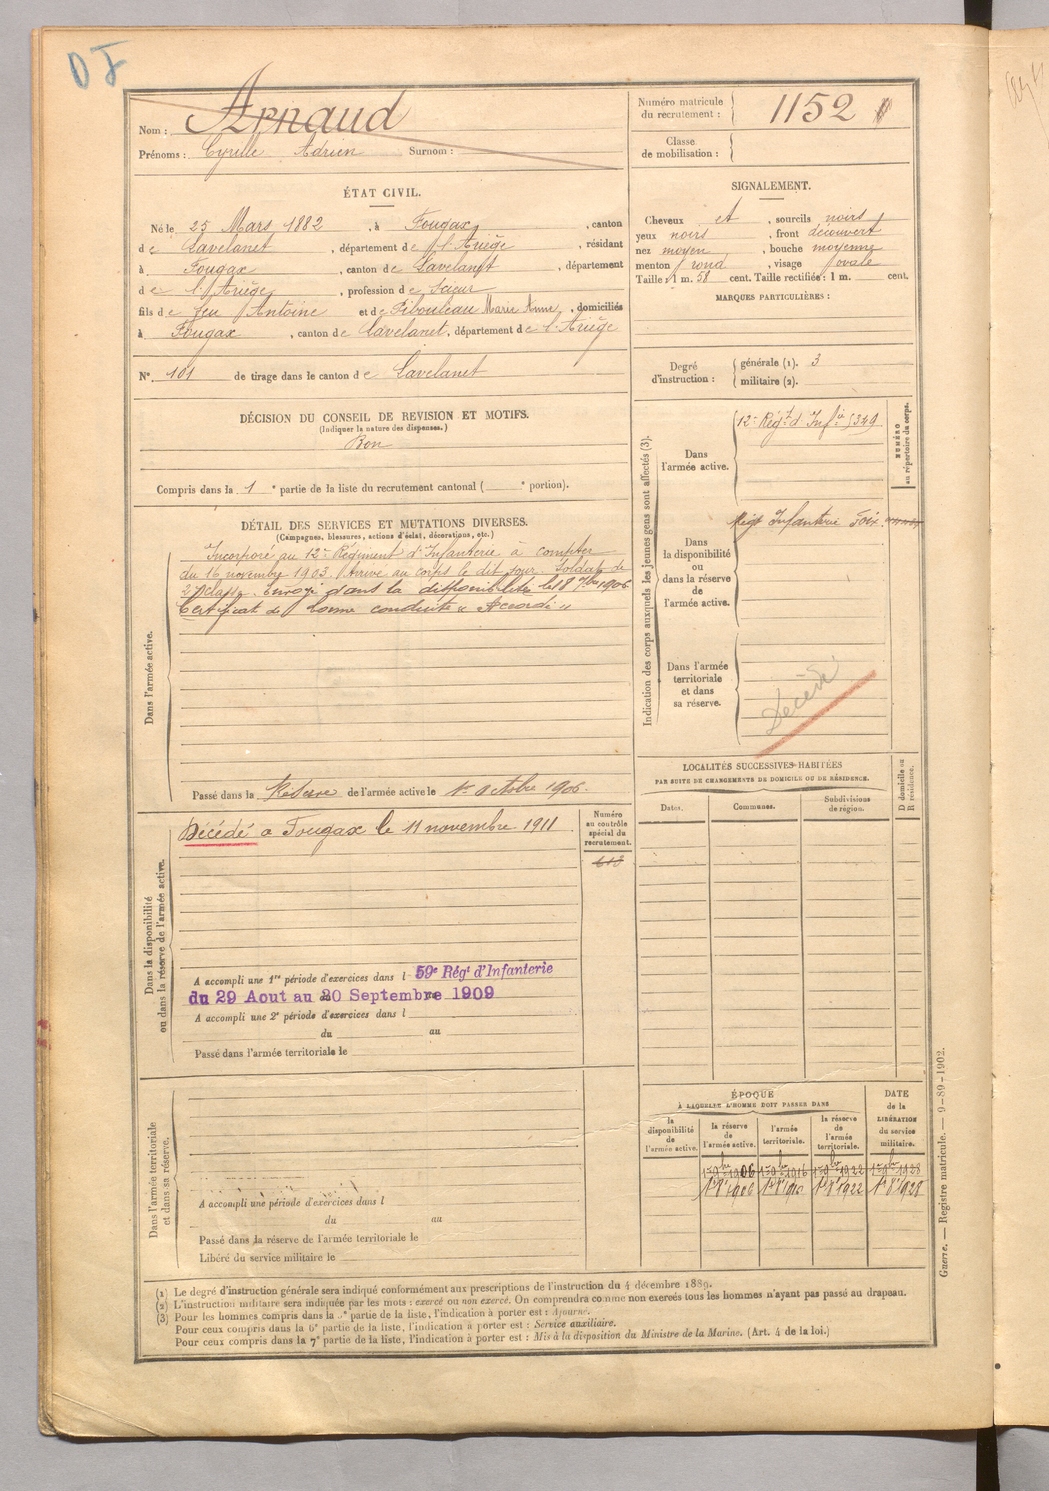 DF
Nom : Arnaud
Prénoms : Cyrille Adrien Surnom :
Numéro matricule du recrutement : 1152
Classe de mobilisation :
ÉTAT CIVIL.
Né le 25 Mars 1882, à Fougax, canton
de Lavelanet, département de l'Ariège, résidant
à Fougax, canton de Lavelanet, département
de l'Ariège, profession de Scieur
fils de feu Antoine et de Pibouleau Marie Anne, domiciliés
à Fougax, canton de Lavelanet, département de l'Ariège
N° 101 de tirage dans le canton de Lavelanet
SIGNALEMENT.
Cheveux et, sourcils noirs
yeux noirs, front découvert
nez moyen, bouche moyenne
menton rond, visage ovale
Taille : 1 m. 58 cent. Taille rectifiée : 1 m. cent.
MARQUES PARTICULIÈRES :
Degré d'instruction : générale (1). 3
militaire (2).
DÉCISION DU CONSEIL DE REVISION ET MOTIFS.
(Indiquer la nature des dispenses.)
Bon
Compris dans la 1e partie de la liste du recrutement cantonal ( e portion).
DÉTAIL DES SERVICES ET MUTATIONS DIVERSES.
(Campagnes, blessures, actions d'éclat, décorations, etc.)
Dans l'armée active.
Incorporé au 12e Régiment d'Infanterie à compter
du 16 novembre 1903. Arrivé au corps le dit jour. Soldat de
2e classe. Envoyé dans la disponibilité le 18 7bre 1906.
Certificat de bonne conduite « Accordé »
Passé dans la Réserve de l'armée active le 1er Octobre 1906.
Indication des corps auxquels les jeunes gens sont affectés (3).
NUMÉRO au répertoire du corps.
Dans l'armée active.
12e Régt d'Infie 5349
Dans la disponibilité ou dans la réserve de l'armée active.
Régt Infanterie Foix
Dans l'armée territoriale et dans sa réserve.
Décédé
LOCALITÉS SUCCESSIVES HABITÉES
PAR SUITE DE CHANGEMENTS DE DOMICILE OU DE RÉSIDENCE.
D domicile ou R résidence.
Dates. Communes. Subdivisions de région.
Dans la disponibilité ou dans la réserve de l'armée active.
Décédé à Fougax le 11 novembre 1911
Numéro au contrôle spécial du recrutement.
A accompli une 1re période d'exercices dans l 59e Régt d'Infanterie
du 29 Aout au 20 Septembre 1909
A accompli une 2e période d'exercices dans l
du au
Passé dans l'armée territoriale le
Dans l'armée territoriale et dans sa réserve.
A accompli une période d'exercices dans l
du au
Passé dans la réserve de l'armée territoriale le
Libéré du service militaire le
ÉPOQUE
À LAQUELLE L'HOMME DOIT PASSER DANS
DATE de la LIBÉRATION du service militaire.
la disponibilité de l'armée active.
la réserve de l'armée active.
l'armée territoriale.
la réserve de l'armée territoriale.
1er 9bre 1906 1er 9bre 1916 1er 9bre 1922 1er 9bre 1928
1er 8e 1906 1er 8e 1916 1er 8e 1922 1er 8e 1928
(1) Le degré d'instruction générale sera indiqué conformément aux prescriptions de l'instruction du 4 décembre 1889.
(2) L'instruction militaire sera indiquée par les mots : exercé ou non exercé. On comprendra comme non exercés tous les hommes n'ayant pas passé au drapeau.
(3) Pour les hommes compris dans la partie de la liste, l'indication à porter est : Ajourné.
Pour ceux compris dans la 6e partie de la liste, l'indication à porter est : Service auxiliaire.
Pour ceux compris dans la 7e partie de la liste, l'indication à porter est : Mis à la disposition du Ministre de la Marine. (Art. 4 de la loi.)
Guerre. — Registre matricule. — 9-89-1902.